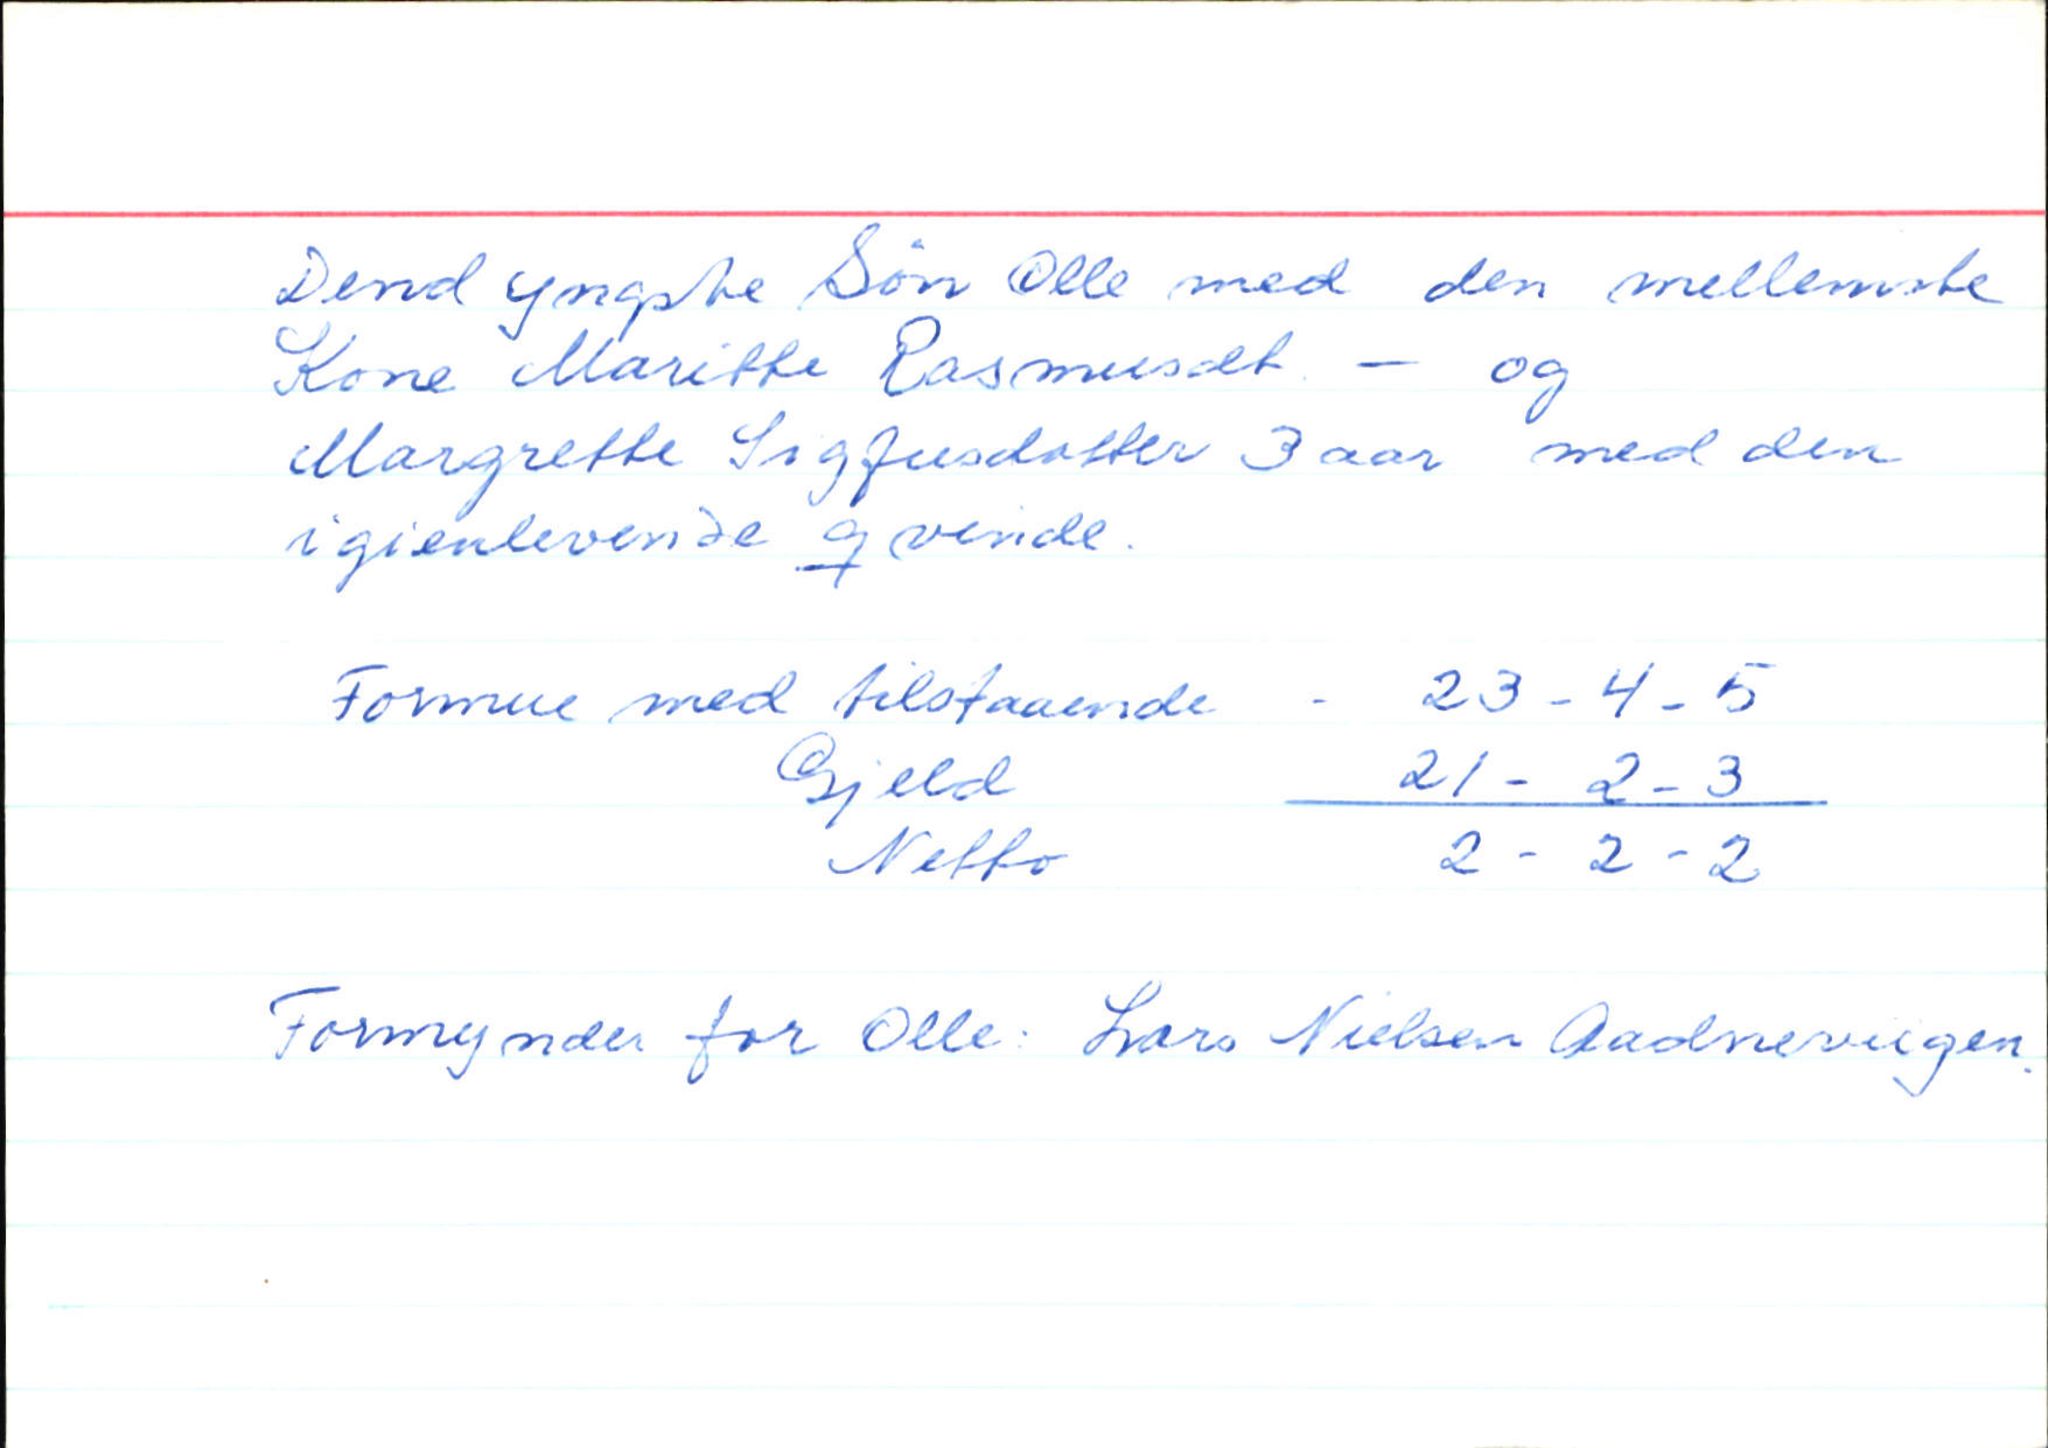 Dend yngste Sön Olle med den mellemste
Kone Maritte Rasmusdt. — og
Margrette Sigfusdotter 3 aar med den
igienlevende qvinde.
Formue med tilstaaende - 23-4-5
Gjeld 21-2-3
Netto 2-2-2
Formynder for Olle: Lars Nielsen Aadnevigen.